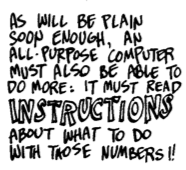 AS WILL BE PLAIN
SOON ENOUGH, AN
ALL-PURPOSE COMPUTER
MUST ALSO BE ABLE TO
DO MORE: IT MUST READ
INSTRUCTIONS
ABOUT WHAT TO DO
WITH THOSE NUMBERS!!